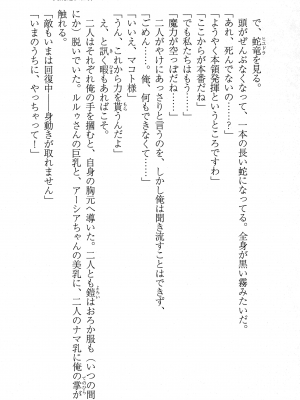 で、蛇竜を見る。
頭がぜんぶなくなって、一本の長い蛇になってる。全身が黒い霧みたいだ。
「あれ、死んでないの……？」
「ようやく本領発揮というところですわ」
「ここからが本番だね」
「でも私たちはもう……」
「魔力が空っぽだね……」
二人がやけにあっさりと言うのを、しかし俺は聞き流すことはできず、
「ごめん……。俺、何もできなくて……」
「いいえ、マコト様」
「うん、これから力を貰うんだよ」
え、と訊く暇もあればこそ。
二人はそれぞれ俺の手を摑むと、自身の胸元へ導いた。二人とも鎧はおろか服も（いつの間
にか）脱いでいた。ルルゥさんの巨乳と、アーシアちゃんの美乳に、二人のナマ乳に俺の掌が
触れる。
「敵もいまは回復中――身動きが取れません」
「いまのうちに、やっちゃって！」